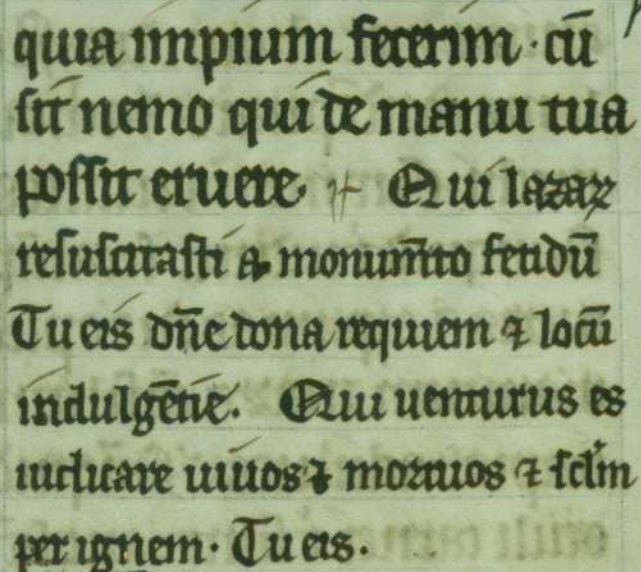 quia impium fecerim · cū
sit nemo qui de manu tua
possit eruere. Qui lazaꝝ
resuscitasti a monum̄to fetidū
Tu eis dn̄e dona requiem ⁊ locū
indulgētie. Qui uenturus es
iudicare uiuos ⁊ mortuos ⁊ sclm̄
per ignem · Tu eis.